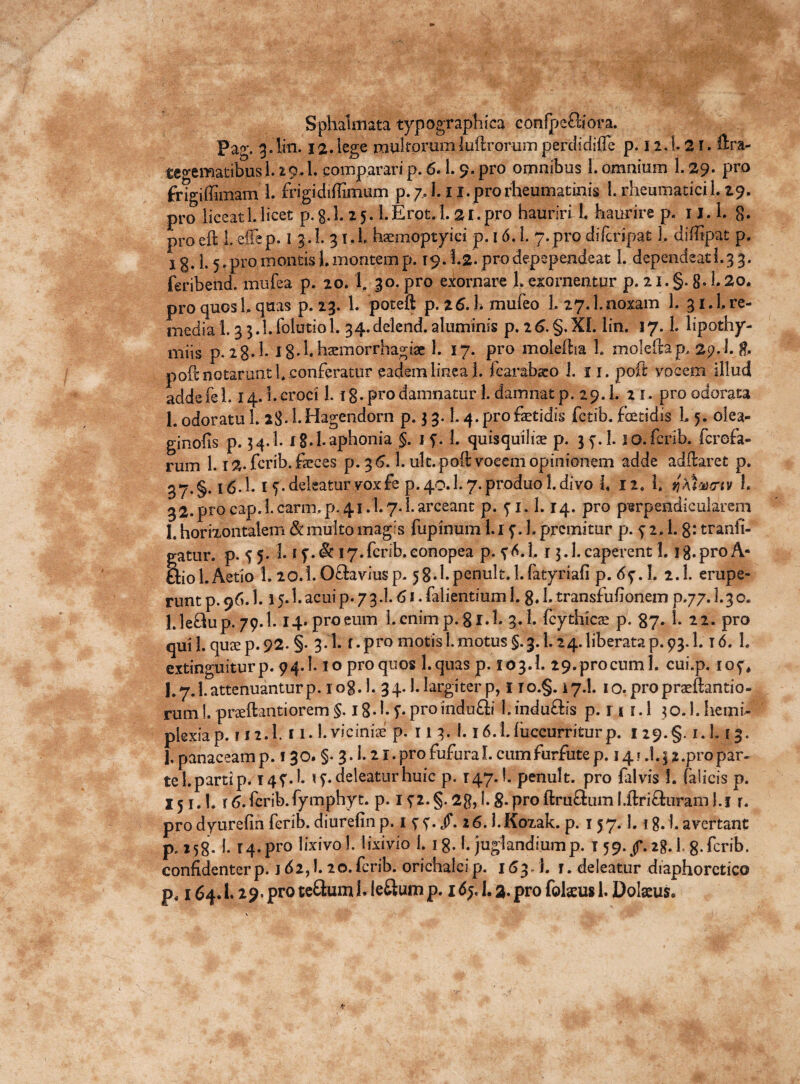 Sphalmata typographica conspectiora.
Pag. 3. lin. 12. lege multorum lustrorum perdidisse p. 12. l. 21. stra-
tegematibus l. 29. l. comparari p. 6. l. 9. pro omnibus l. omnium l. 29. pro
frigissimam l. frigidissimum p. 7. l. 11. pro rheumatinis l. rheumatici l. 29.
pro liceat l. licet p. 8. l. 25. l. Erot. l. 21. pro hauriri l. haurire p. 11. l. 8.
pro est l. esse p. 13. l. 31. l. hæmoptyici p. 16. l. 7. pro discripat l. dissipat p.
18. l. 5. pro montis l. montem p. 19. l. 2. pro depependeat l. dependeat l. 33.
scribend. musea p. 20. l. 30. pro exornare l. exornentur p. 21. §. 8. l. 20.
pro quos l. quas p. 23. l. potest p. 26. l. museo l. 27. l. noxam l. 31. l. re-
media l. 33. l. solutio l. 34. delend. aluminis p. 26. §. XI. lin. 17. l. lipothy-
miis p. 28. l. 18. l. hæmorrhagiæ l. 17. pro molestia l. molesta p. 29. l. 8.
post notarunt l. conferatur eadem linea l. scarabæo l. 11. post vocem illud
adde se l. 14. l. croci l. 18. pro damnatur l. damnat p. 29. l. 21. pro odorata
l. odoratu l. 28. l. Hagendorn p. 33. l. 4. pro fætidis scrib. fœtidis l. 5. olea-
ginosis p. 34. l. 18. l. aphonia §. 15. l. quisquiliæ p. 35. l. 10. scrib. scrofa-
rum l. 12. scrib. fæces p. 36. l. ult. post vocem opinionem adde adstaret p.
37. §. 16. l. 15. deleatur vox se p. 40. l. 7. produo l. divo l. 12. l. ἠλίασιν l.
32. pro cap. l. carm. p. 41. l. 7. l. arceant p. 51. l. 14. pro pærpendicularem
l. horizontalem & multo magis supinum l. 15. l. premitur p. 52. l. 8: transi-
gatur. p. 55. l. 15. & 17. scrib. conopea p. 56. l. 13. l. caperent l. 18. pro A-
ctio l. Aetio l. 20. l. Octavius p. 58. l. penult. l. satyriasi p. 65. l. 2. l. erupe-
runt p. 96. l. 15. l. acui p. 73. l. 61. salientium l. 8. l. transfusionem p. 77. l. 30.
l. lectu p. 79. l. 14. pro eum l. enim p. 81. l. 3. l. scythicæ p. 87. l. 22. pro
qui l. quæ p. 92. §. 3. l. 1. pro motis l. motus §. 3. l. 24. liberata p. 93. l. 16. l.
extinguitur p. 94. l. 10 pro quos l. quas p. 103. l. 29. pro cum l. cui. p. 105.
l. 7. l. attenuantur p. 108. l. 34. l. largiter p, 110. §. 17. l. 10. pro præstantio-
rum l. præstantiorem §. 18. l. 5. pro inducti l. inductis p. 111. l 30. l. hemi-
plexia p. 112. l. 11. l. viciniæ p. 113. l. 16. l. succurritur p. 129. §. 1. l. 13.
l. panaceam p. 130. §. 3. l. 21. pro fufura l. cum furfute p. 141. l. 32. pro par-
te l. parti p. 145. l. 15. deleatur huic p. 147. l. penult. pro salvis l. salicis p.
151. l. 16. scrib. symphyt. p. 152. §. 28, l. 8. pro structum l. stricturam l. 11.
pro dyuresin scrib. diuresin p. 155. §. 26. l. Kozak. p. 157. l. 18. l. avertant
p. 158. l. 14. pro lixivo l. lixivio l. 18. l. juglandium p. 159. §. 28. l. 8. scrib.
confidenter p. 162, l. 20. scrib. orichalci p. 163. l. 1. deleatur diaphoretico
p. 164. l. 29. pro tectum l. lectum p. 165. l. 2. pro solæus l. Dolæus.